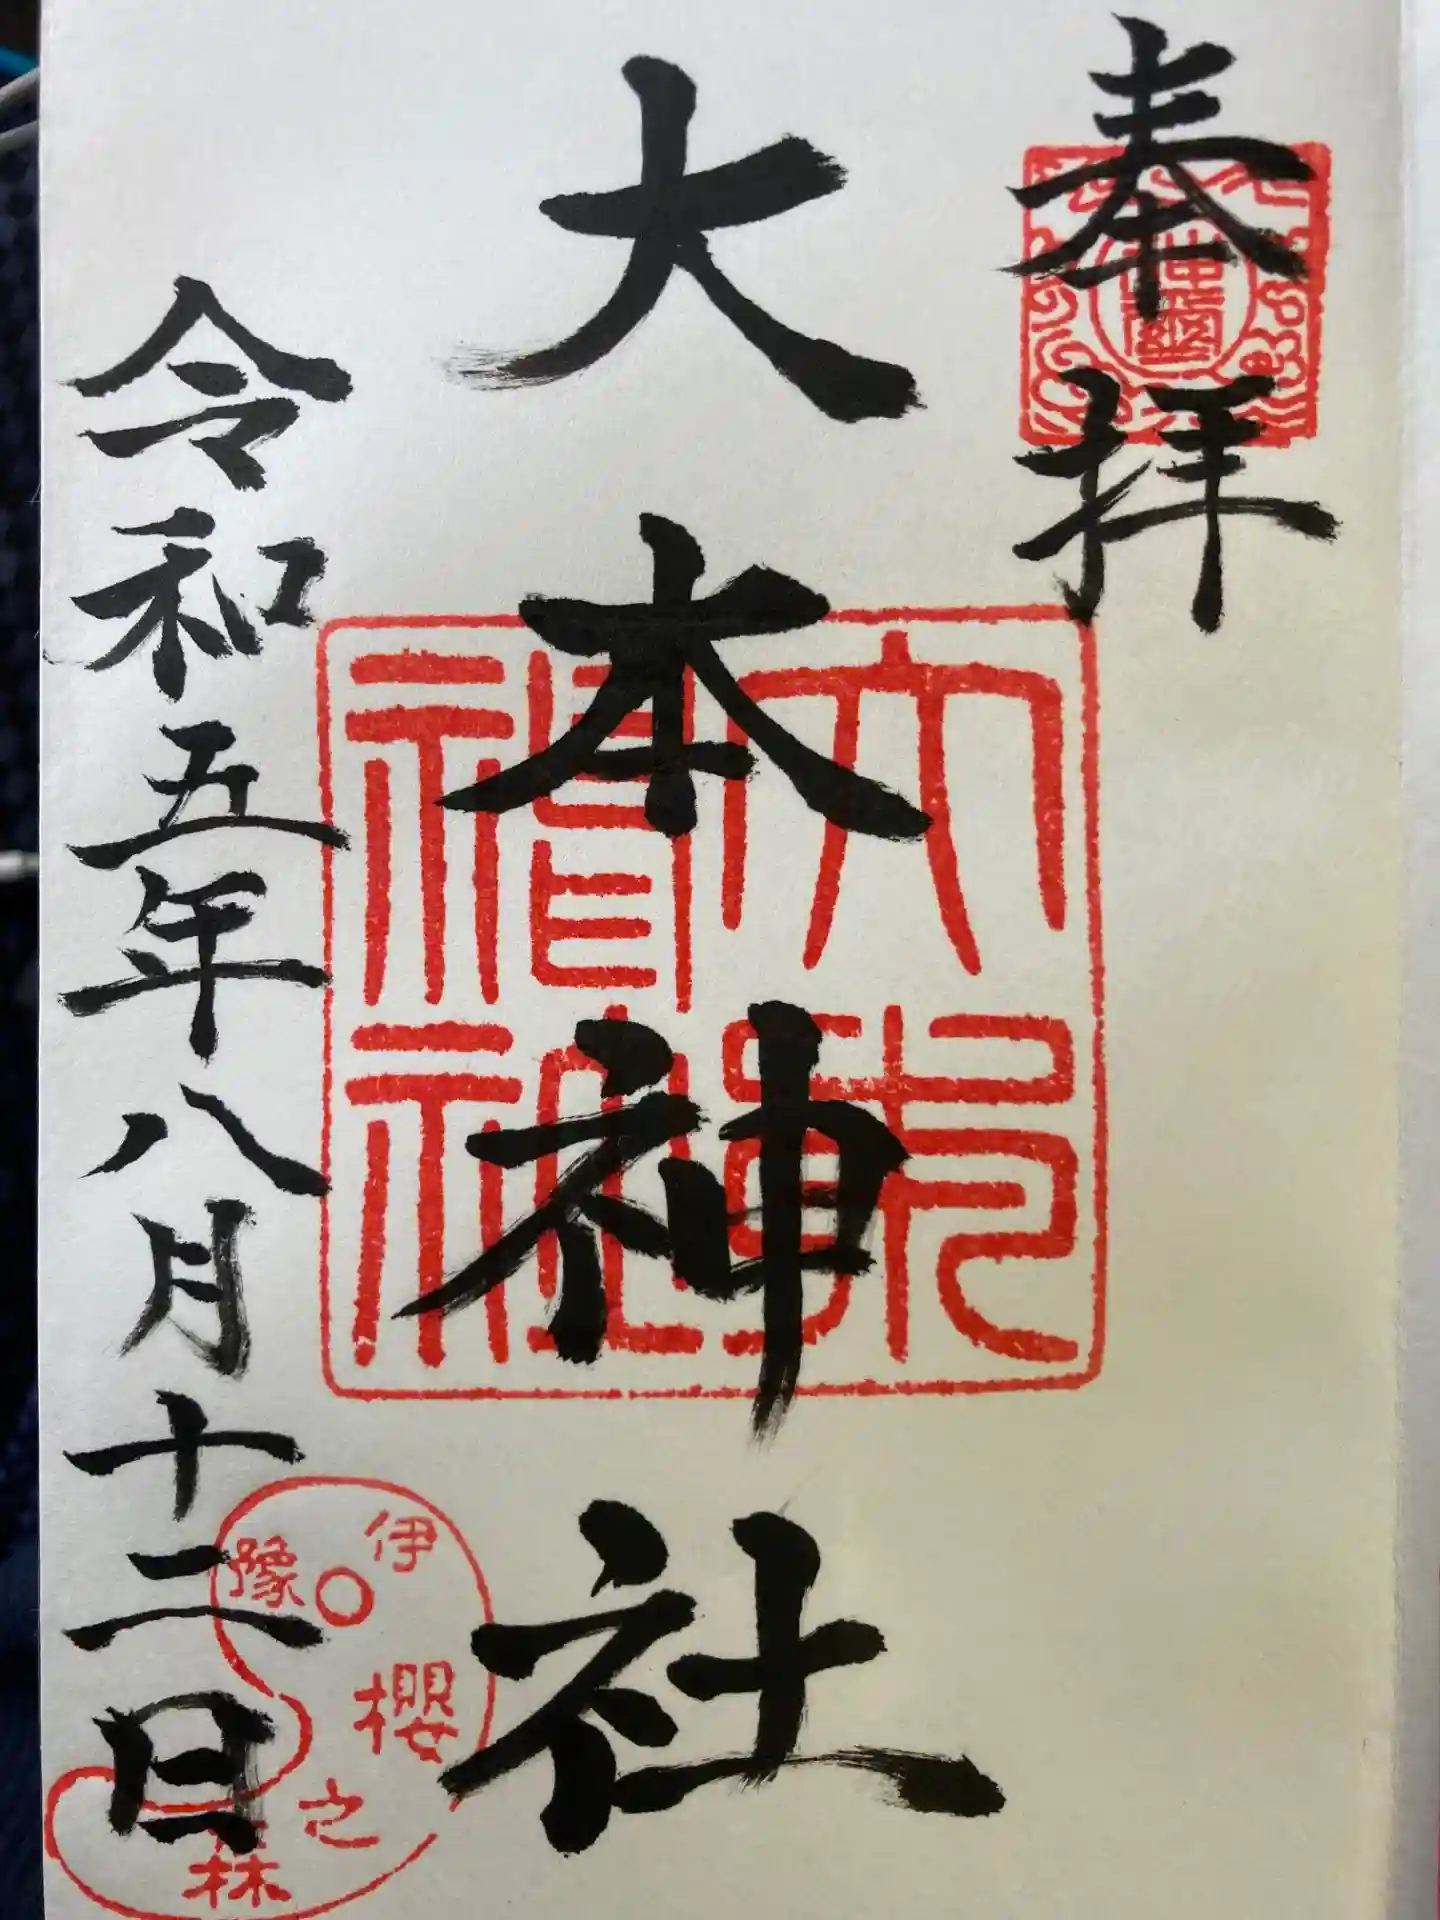 奉拝
大本神社
令和五年八月十二日
神璽
大本神社
伊豫
櫻之森